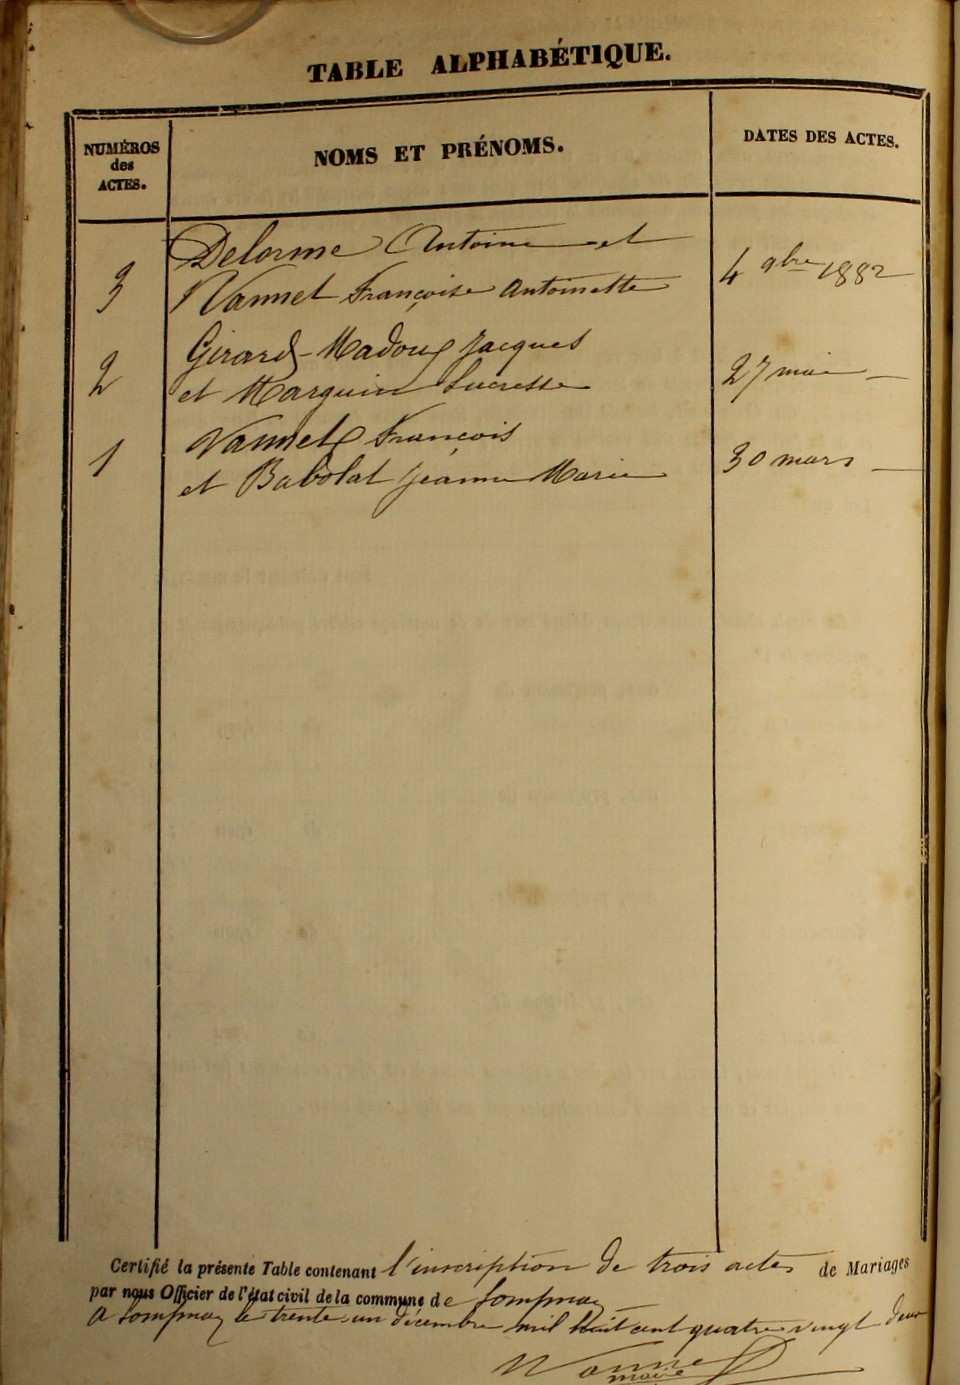 TABLE ALPHABÉTIQUE.
NUMÉROS
des
ACTES.
NOMS ET PRÉNOMS.
DATES DES ACTES.
Delorme Antoine et
3 Vannet Françoise Antoinette 4 9bre 1882
Girard-Madoux Jacques
2 et Marguin Lucresse 27 mai
Vannet François
1 et Babolat Jeanne Marie 30 mars
Certifié la présente Table contenant l'inscription de trois actes de Mariages
par nous Officier de l'état civil de la commune de Lompnaz
A Lompnaz le trente un décembre mil huit cent quatre vingt deux
Vannet
maire